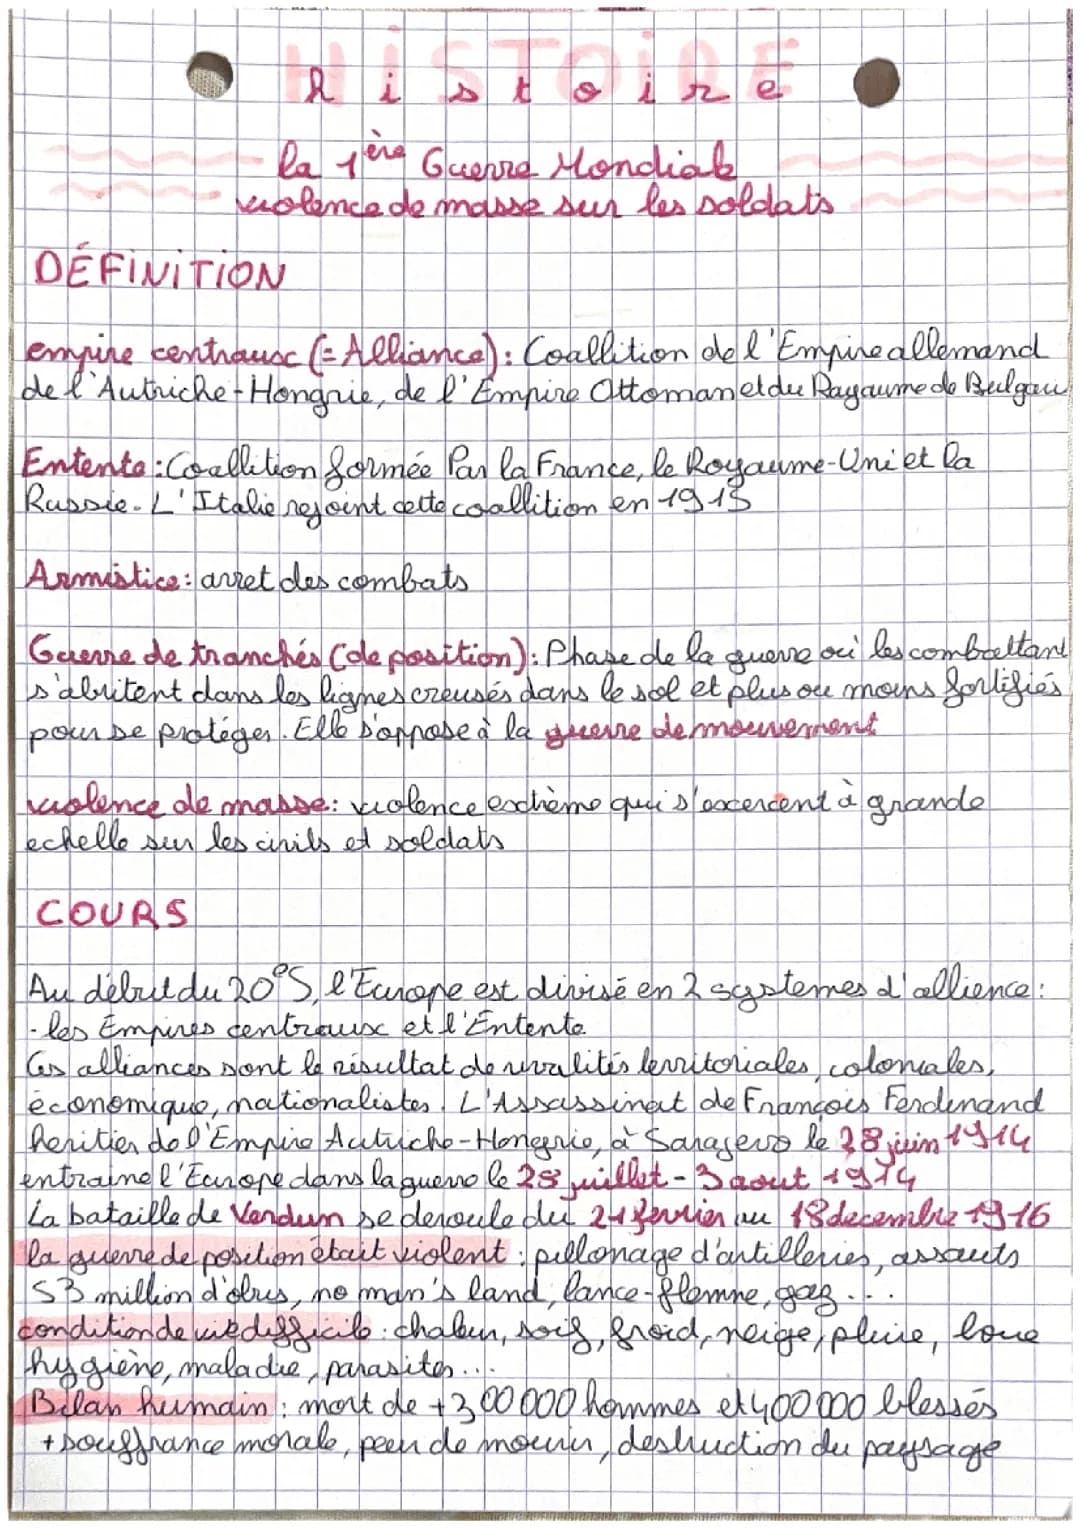 HISTOIRE
histoire
la 1ère Guerre Mondiale
violence de masse sur les soldats
DÉFINITION
empire centraux (=Alliance): Coallition de l'Empire allemand
de l'Autriche-Hongrie, de l'Empire Ottoman et du Rayaume de Bulgari
Entente: Coallition formée Par la France, le Royaume-Uni et la
Russie. L'Italie rejoint cette coallition en 1915
Armistice: arret des combats
Guerre de tranchés (de position): Phase de la guerre où les combattant
s'abritent dans les lignes creusés dans le sol et plus ou moins fortifiés
pour se protéger. Elle s'oppose à la guerre de mouvement
violence de masse: violence extrème qui s'excercent à grande
echelle sur les civils et soldats
COURS
Au début du 20°S, l'Europe est divisé en 2 systemes d'allience:
- les Empires centraux et l'Entente
Ces alliances sont le résultat de rivalités territoriales, coloniales,
économique, nationalistes. L'Assassinat de François Ferdinand
heritier de l'Empire Autriche-Hongrie, à Sarajevo le 28 juin 1914
entraine l'Europe dans la guerre le 28 juillet - 3 aout 1914
La bataille de Verdun se deroule du 21 fevrier au 18 decembre 1916
la guerre de position était violent: pillonage d'artilleries, assauts
53 million d'obus, no man's land, lance-flemme, gaz...
condition de vie difficile: chaleur, soif, froid, neige, pluie, boue
hygiène, maladie, parasites...
Bilan humain: mort de +300 000 hommes et 400 000 blessés
+ souffrance morale, peur de mourir, destruction du paysage